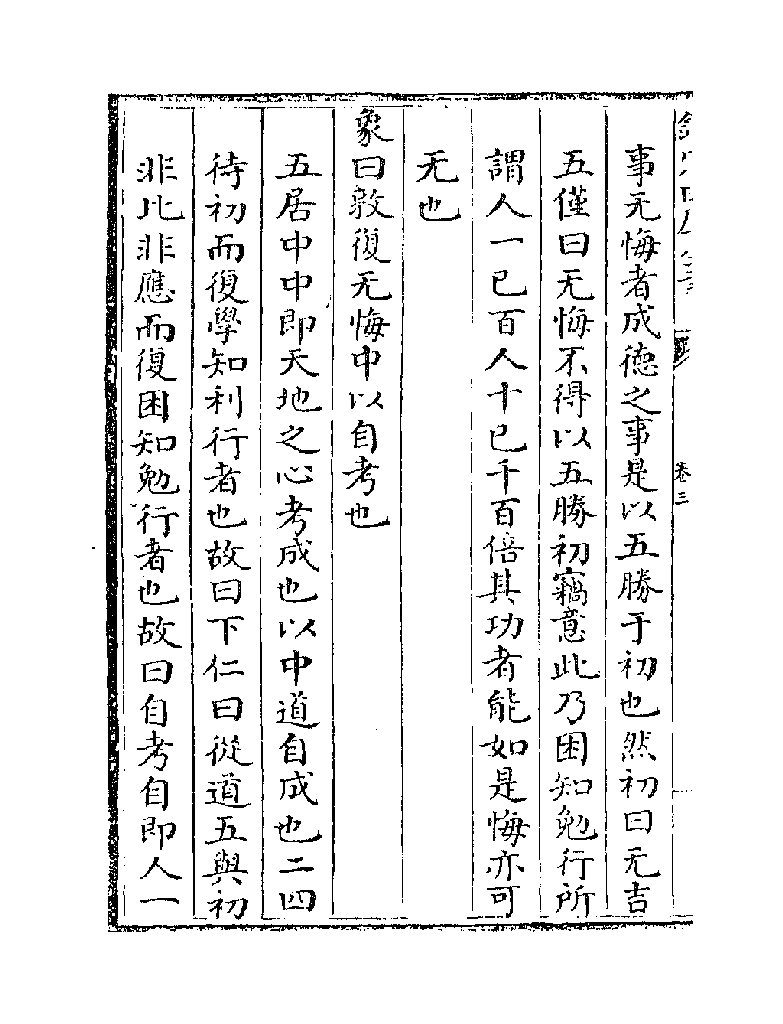 卷三
事无悔者成徳之事是以五勝于初也然初曰无吉
五僅曰无悔不得以五勝初竊意此乃困知勉行所
謂人一已百人十已千百倍其功者能如是悔亦可
无也
象曰敦復无悔中以自考也
五居中中即天地之心考成也以中道自成也二四
待初而復學知利行者也故曰下仁曰從道五與初
非比非應而復困知勉行者也故曰自考自即人一